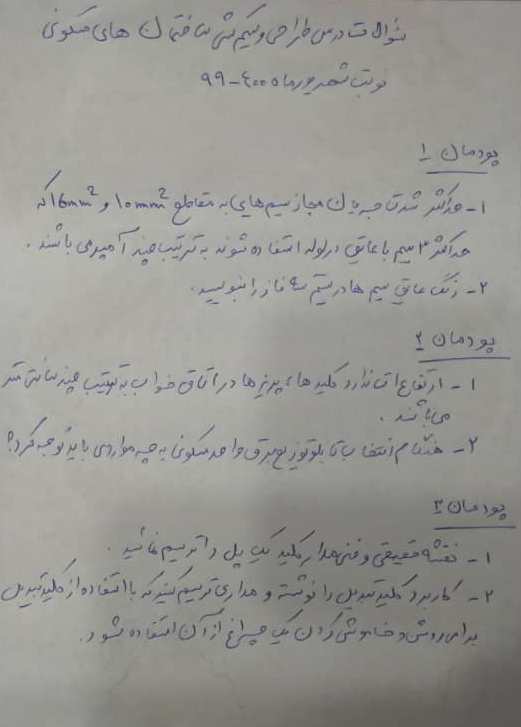 سؤالات درس طراحی و سیم کشی ساختمان های مسکونی
نوبت شهریورماه ۴۰۰-۹۹
پودمان ۱
۱- حداکثر شدت جریان مجاز سیم‌هایی به مقاطع ۱۰mm² و ۱۶mm² که
حداکثر ۳ سیم با عایق در لوله استفاده شوند به ترتیب چند آمپر می باشند.
۲- رنگ عایق سیم ها در سیستم سه فاز را بنویسید.
پودمان ۲
۱- ارتفاع استاندارد کلیدها، پریزها در اتاق خواب به ترتیب چند سانتی متر
می باشند.
۲- هنگام انتخاب تابلو توزیع برق واحد مسکونی به چه مواردی باید توجه کرد؟
پودمان ۳
۱- نقشه حقیقی و فنی مدار کلید یک پل را ترسیم نمائید.
۲- کاربرد کلید تبدیل را نوشته و مداری ترسیم کنید که با استفاده از کلید تبدیل
برای روشن و خاموش کردن یک چراغ از آن استفاده شود.